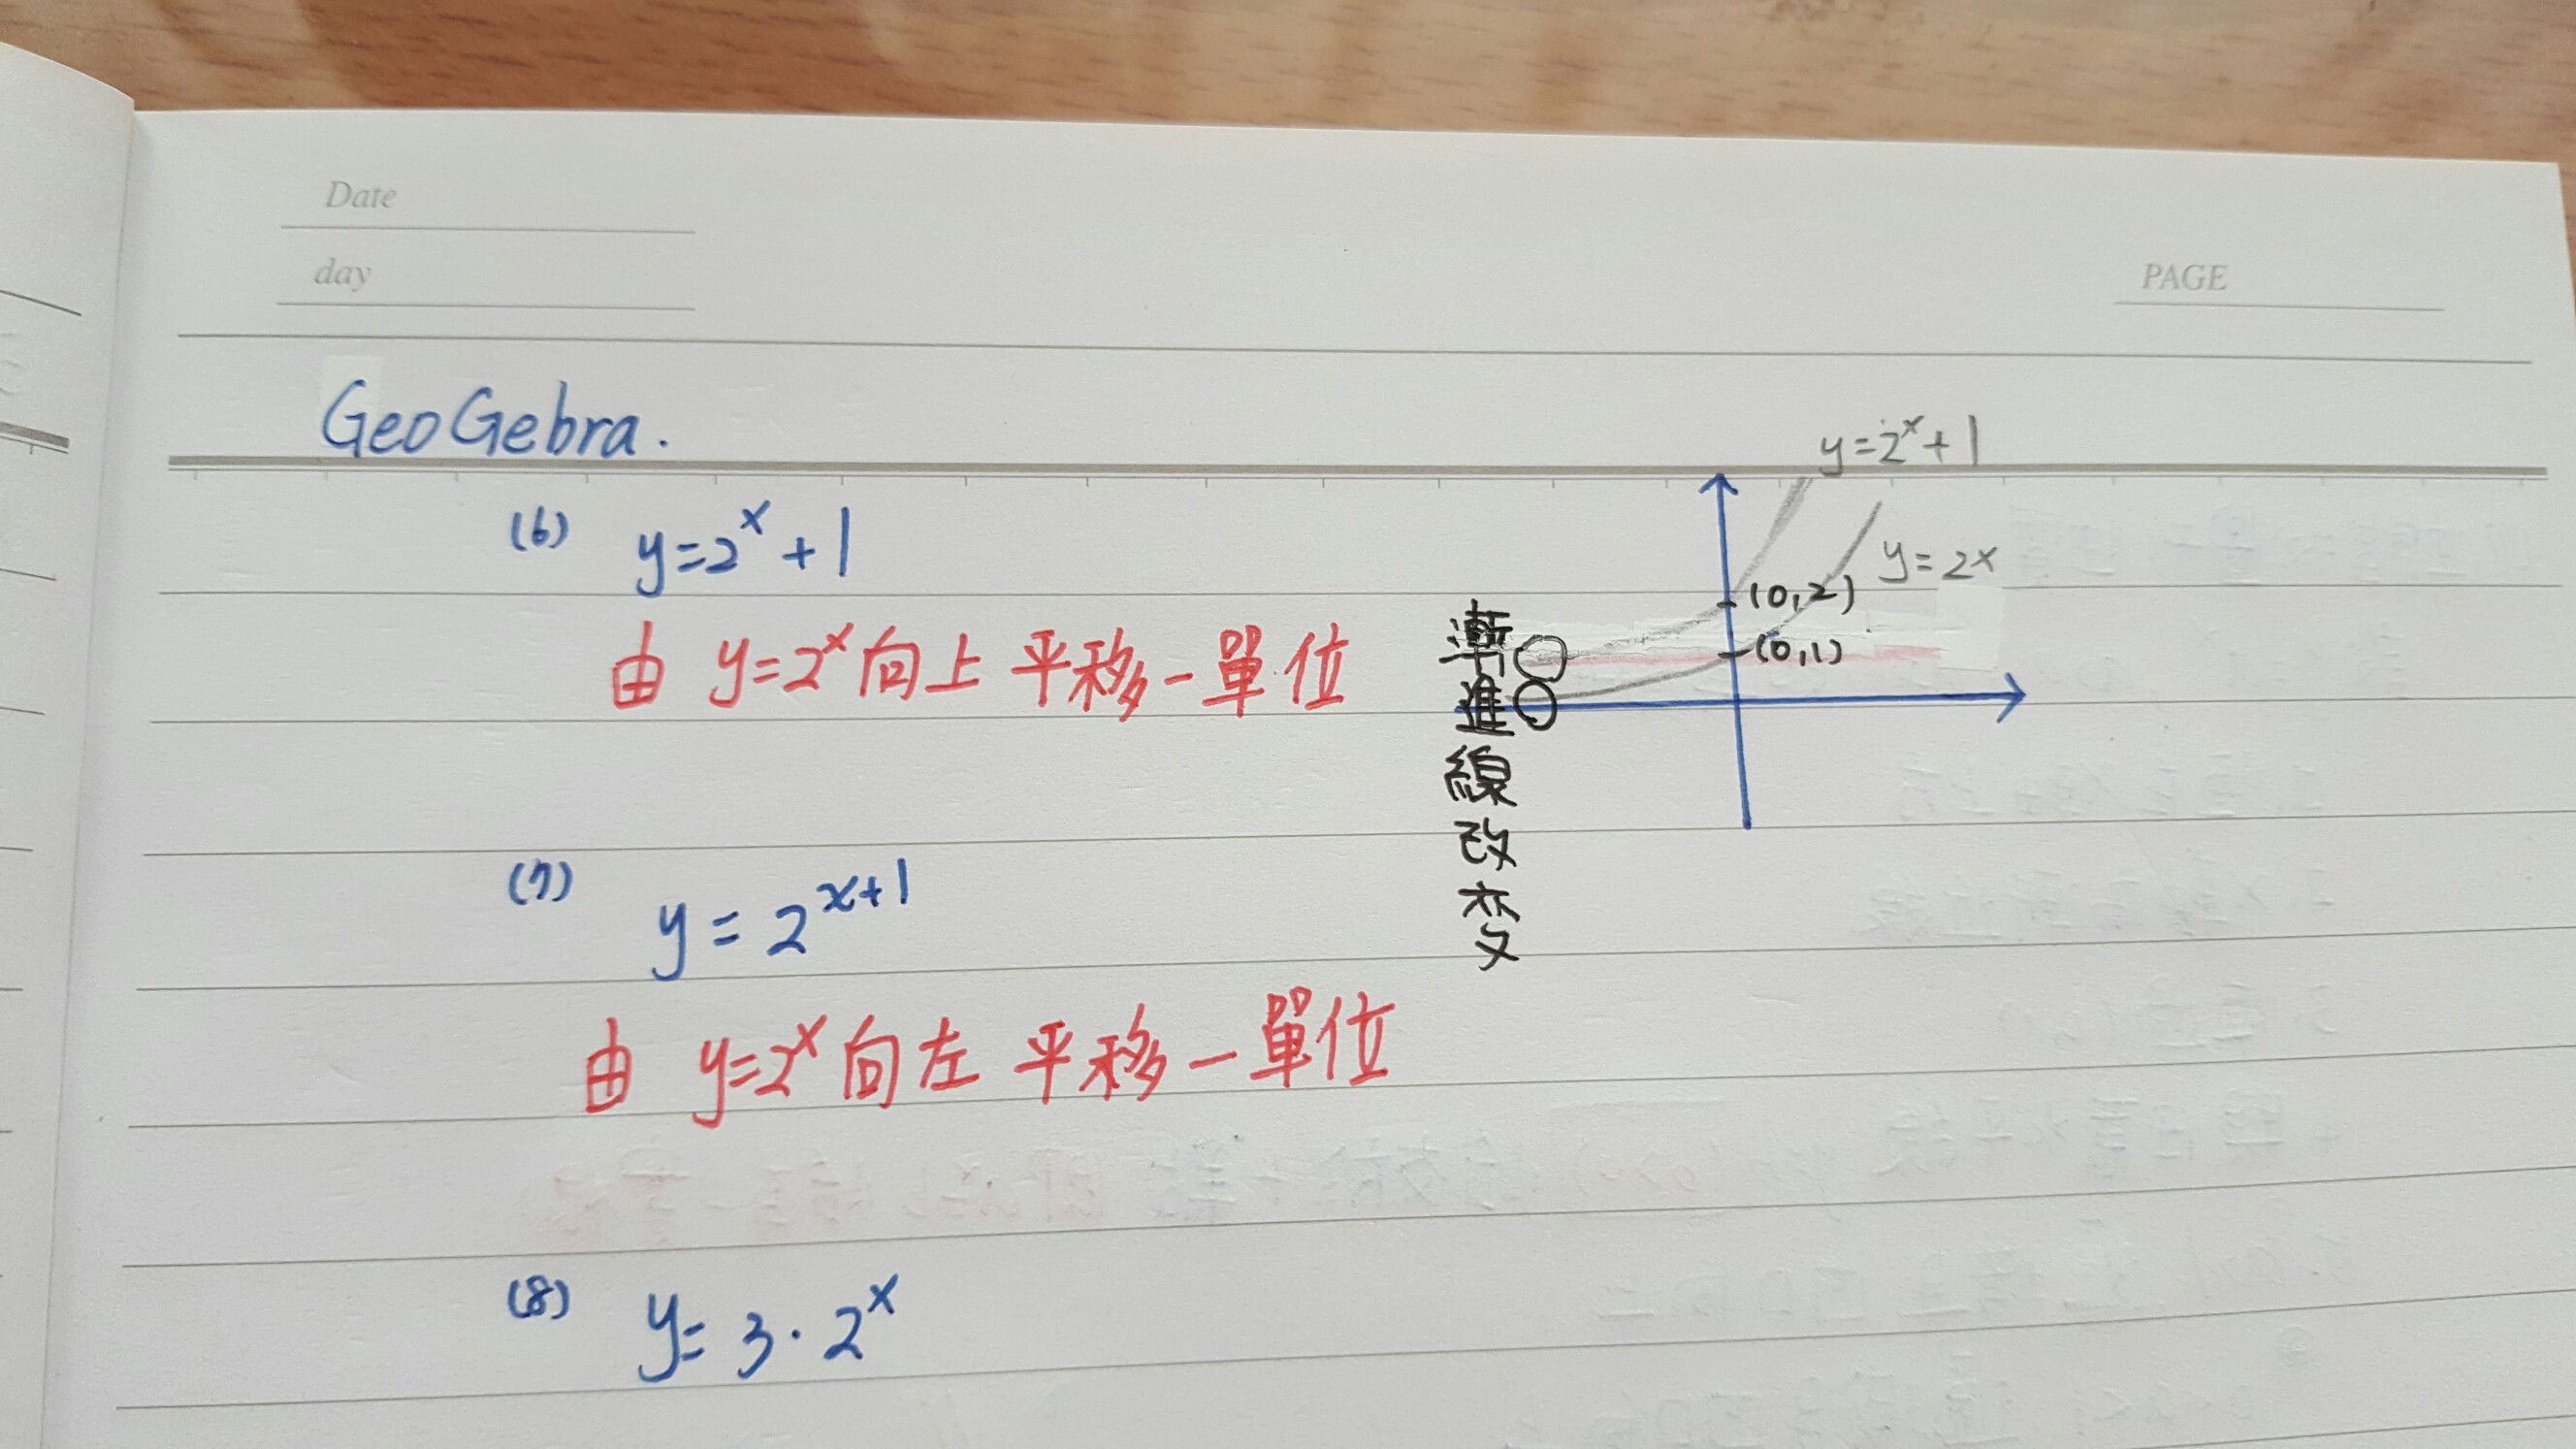 Date
day
PAGE
GeoGebra.
(6) y=2^x+1
由 y=2^x向上平移一單位
y=2^x+1
y=2^x
(0,2)
(0,1)
漸進線改变
(7) y=2^{x+1}
由 y=2^x向左平移一單位
(8) y=3·2^x